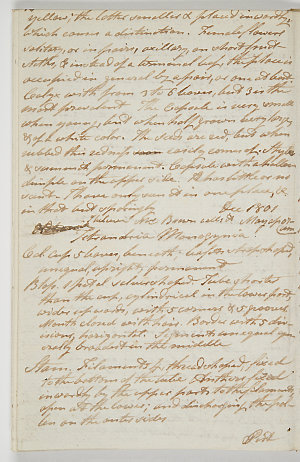 yellow; the latter smallest & placed inwardly,
which causes a distinction. Female flowers
solitary, or in pairs, axillary, on short foot
stalks, & instead of a terminal leaf, the place is
occupied in general by a pair, or one at least
Calyx with from 3 to 6 leaves, but 3 is the
most prevalent. The Capsule is very small
when young, and when half grown very large
& of a white color. The Seeds are red, but when
rubbed this redness comes easily off. Styles
& summits permanent. Capsule with a hollow
dimple on the upper side. It has little or no
scent. I have only seen it in one place, &
in that but sparingly.
Dec 1801
I believe Mr. Brown calls it Myopor
Tetrandria Monogynia
Cal. cup, 5 leaves, beneath, awl-shaped,
unequal, upright, permanent
Bloss. 1 petal, salver shaped. Tube shorter
than the cup, cylindrical in the lower part,
wider upwards, with 5 corners & 5 furrows.
Mouth closed with hair. Border with 5 divi
sions, horizontal. Segments unequal, gen
erally in the middle
Stam. Filaments 4, thread shaped, fixed
to the bottom of the tube. Anthers fixed
inwardly by the upper part to the filaments
open at the lower; and discharging the pol
len on the outer sides
Pist